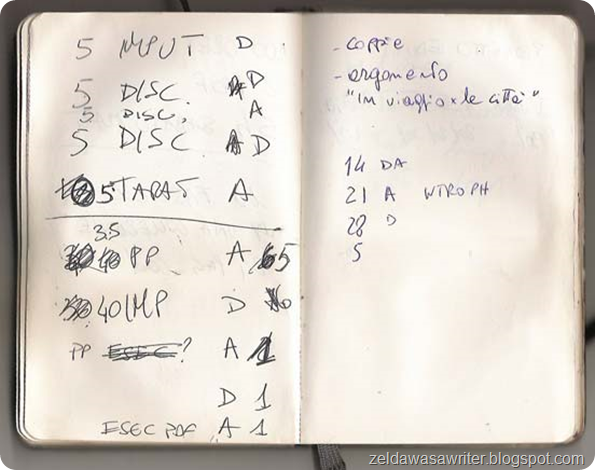 5 IMPUT D
5 DISC. D
5 DISC. A
5 DISC D
5 TARAT A
35
PP A 65
40 IMP D
PP ESEC? A 1
D 1
ESEC PDF A 1
- COPPIE
- argomento
"In viaggio x le città"
14 DA
21 A WTROPH
28 D
5
zeldawasawriter.blogspot.com